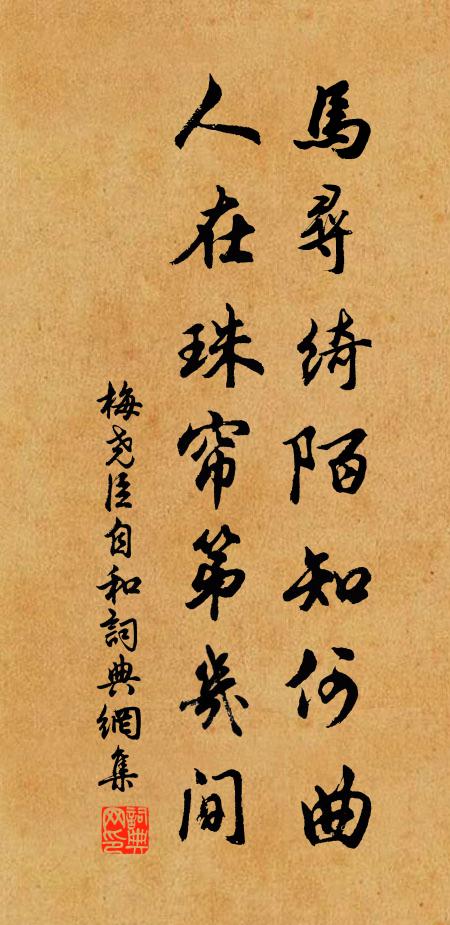 馬尋綺陌知何曲
人在珠帘第幾間
梅尧臣自和詞典網集
詞典網印